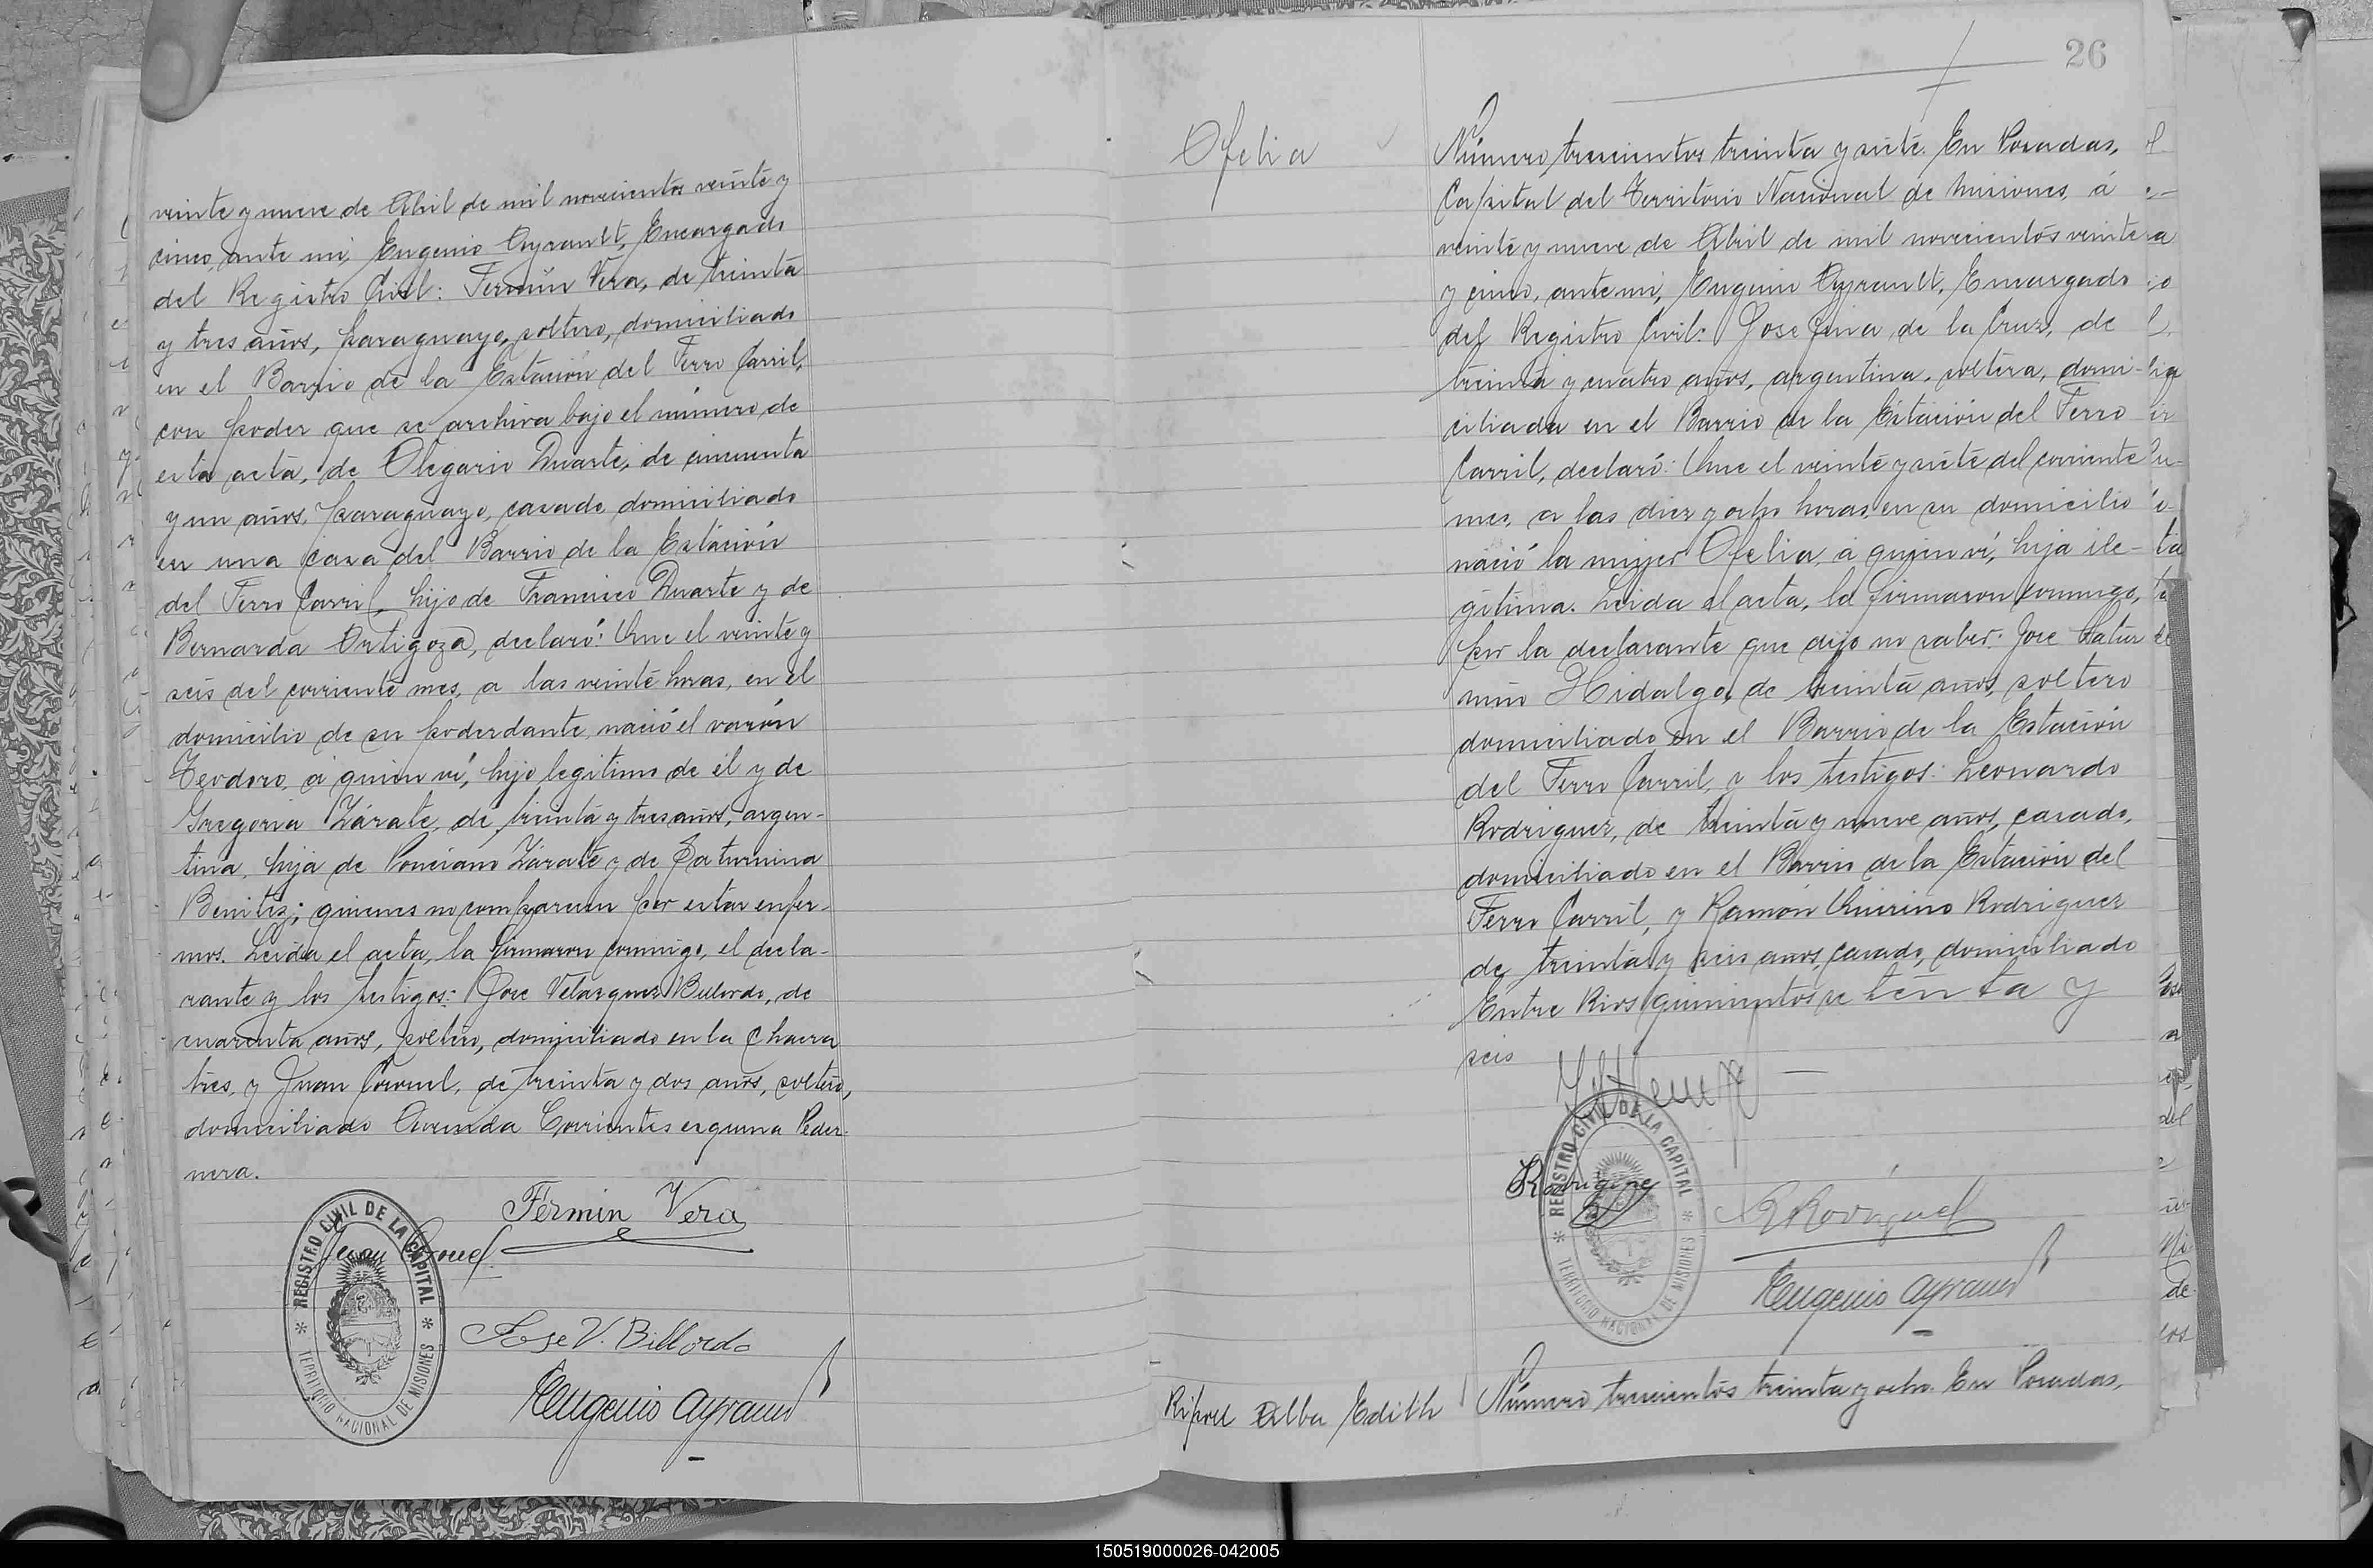 veinte y nueve de Abril de mil novecientos veinte y
cinco, ante mi, Eugenio Ayrault, Encargado
del Registro Civil: Fermín Vera, de treinta
y tres años, paraguayo, soltero, domiciliado
en el Barrio de la Estación del Ferro Carril,
con poder que se archiva bajo el número de
esta acta, de Olegario Duarte, de cincuenta
y un años, paraguayo, casado, domiciliado
en una casa del Barrio de la Estación
del Ferro Carril, hijo de Francisco Duarte y de
Bernarda Ortigoza, declaró: Que el veinte y
seis del corriente mes, a las veinte horas, en el
domicilio de su poderdante, nació el varón
Teodoro, á quien ví, hijo legítimo de él y de
Gregoria Zárate, de treinta y tres años, argen-
tina, hija de Ponciano Zárate y de Saturnina
Benitez; quienes no comparecen por estar enfer-
mos. Leida el acta, la firmaron conmigo, el decla-
rante y los testigos: Jose Velazquez Billordo, de
cuarenta años, soltero, domiciliado en la Chacra
tres, y Juan Coronel, de treinta y dos años, soltero,
domiciliado Avenida Corrientes esquina Peder-
nera.
Fermin Vera
Juan Coronel
REGISTRO CIVIL DE LA CAPITAL
TERRITORIO NACIONAL DE MISIONES
Jose V. Billordo
Eugenio Ayrault
26
Ofelia
Número trescientos treinta y siete. En Posadas,
Capital del Territorio Nacional de Misiones, á
veinte y nueve de Abril de mil novecientos veinte
y cinco, ante mi, Eugenio Ayrault, Encargado
del Registro Civil: Josefina de la Cruz, de
treinta y cuatro años, argentina, soltera, domi-
ciliada en el Barrio de la Estación del Ferro
Carril, declaró: Que el veinte y siete del corriente
mes, a las diez y ocho horas, en su domicilio
nació la mujer Ofelia, á quien ví, hija ile-
gítima. Leida el acta, la firmaron conmigo,
por la declarante que dijo no saber: Jose Satur
nino Hidalgo, de treinta años, soltero
domiciliado en el Barrio de la Estación
del Ferro Carril, y los testigos: Leonardo
Rodriguez, de treinta y nueve años, casado,
domiciliado en el Barrio de la Estación del
Ferro Carril, y Ramón Quirino Rodriguez
de treinta y seis años, casado, domiciliado
Entre Rios quinientos setenta y
seis
REGISTRO CIVIL DE LA CAPITAL
TERRITORIO NACIONAL DE MISIONES
Rodrigue
R Rodriguez
Eugenio Ayrault
Ripoll Alba Edith
Número trescientos treinta y ocho. En Posadas,
150519000026-042005